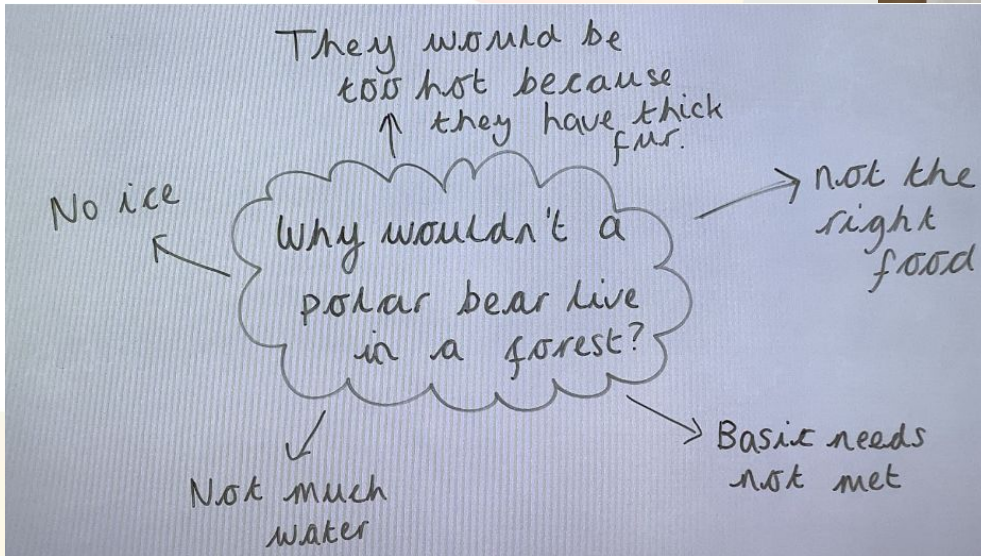 They would be
too hot because
they have thick
fur.
No ice
Why wouldn't a
polar bear live
in a forest?
not the
right
food
Not much
water
Basic needs
not met